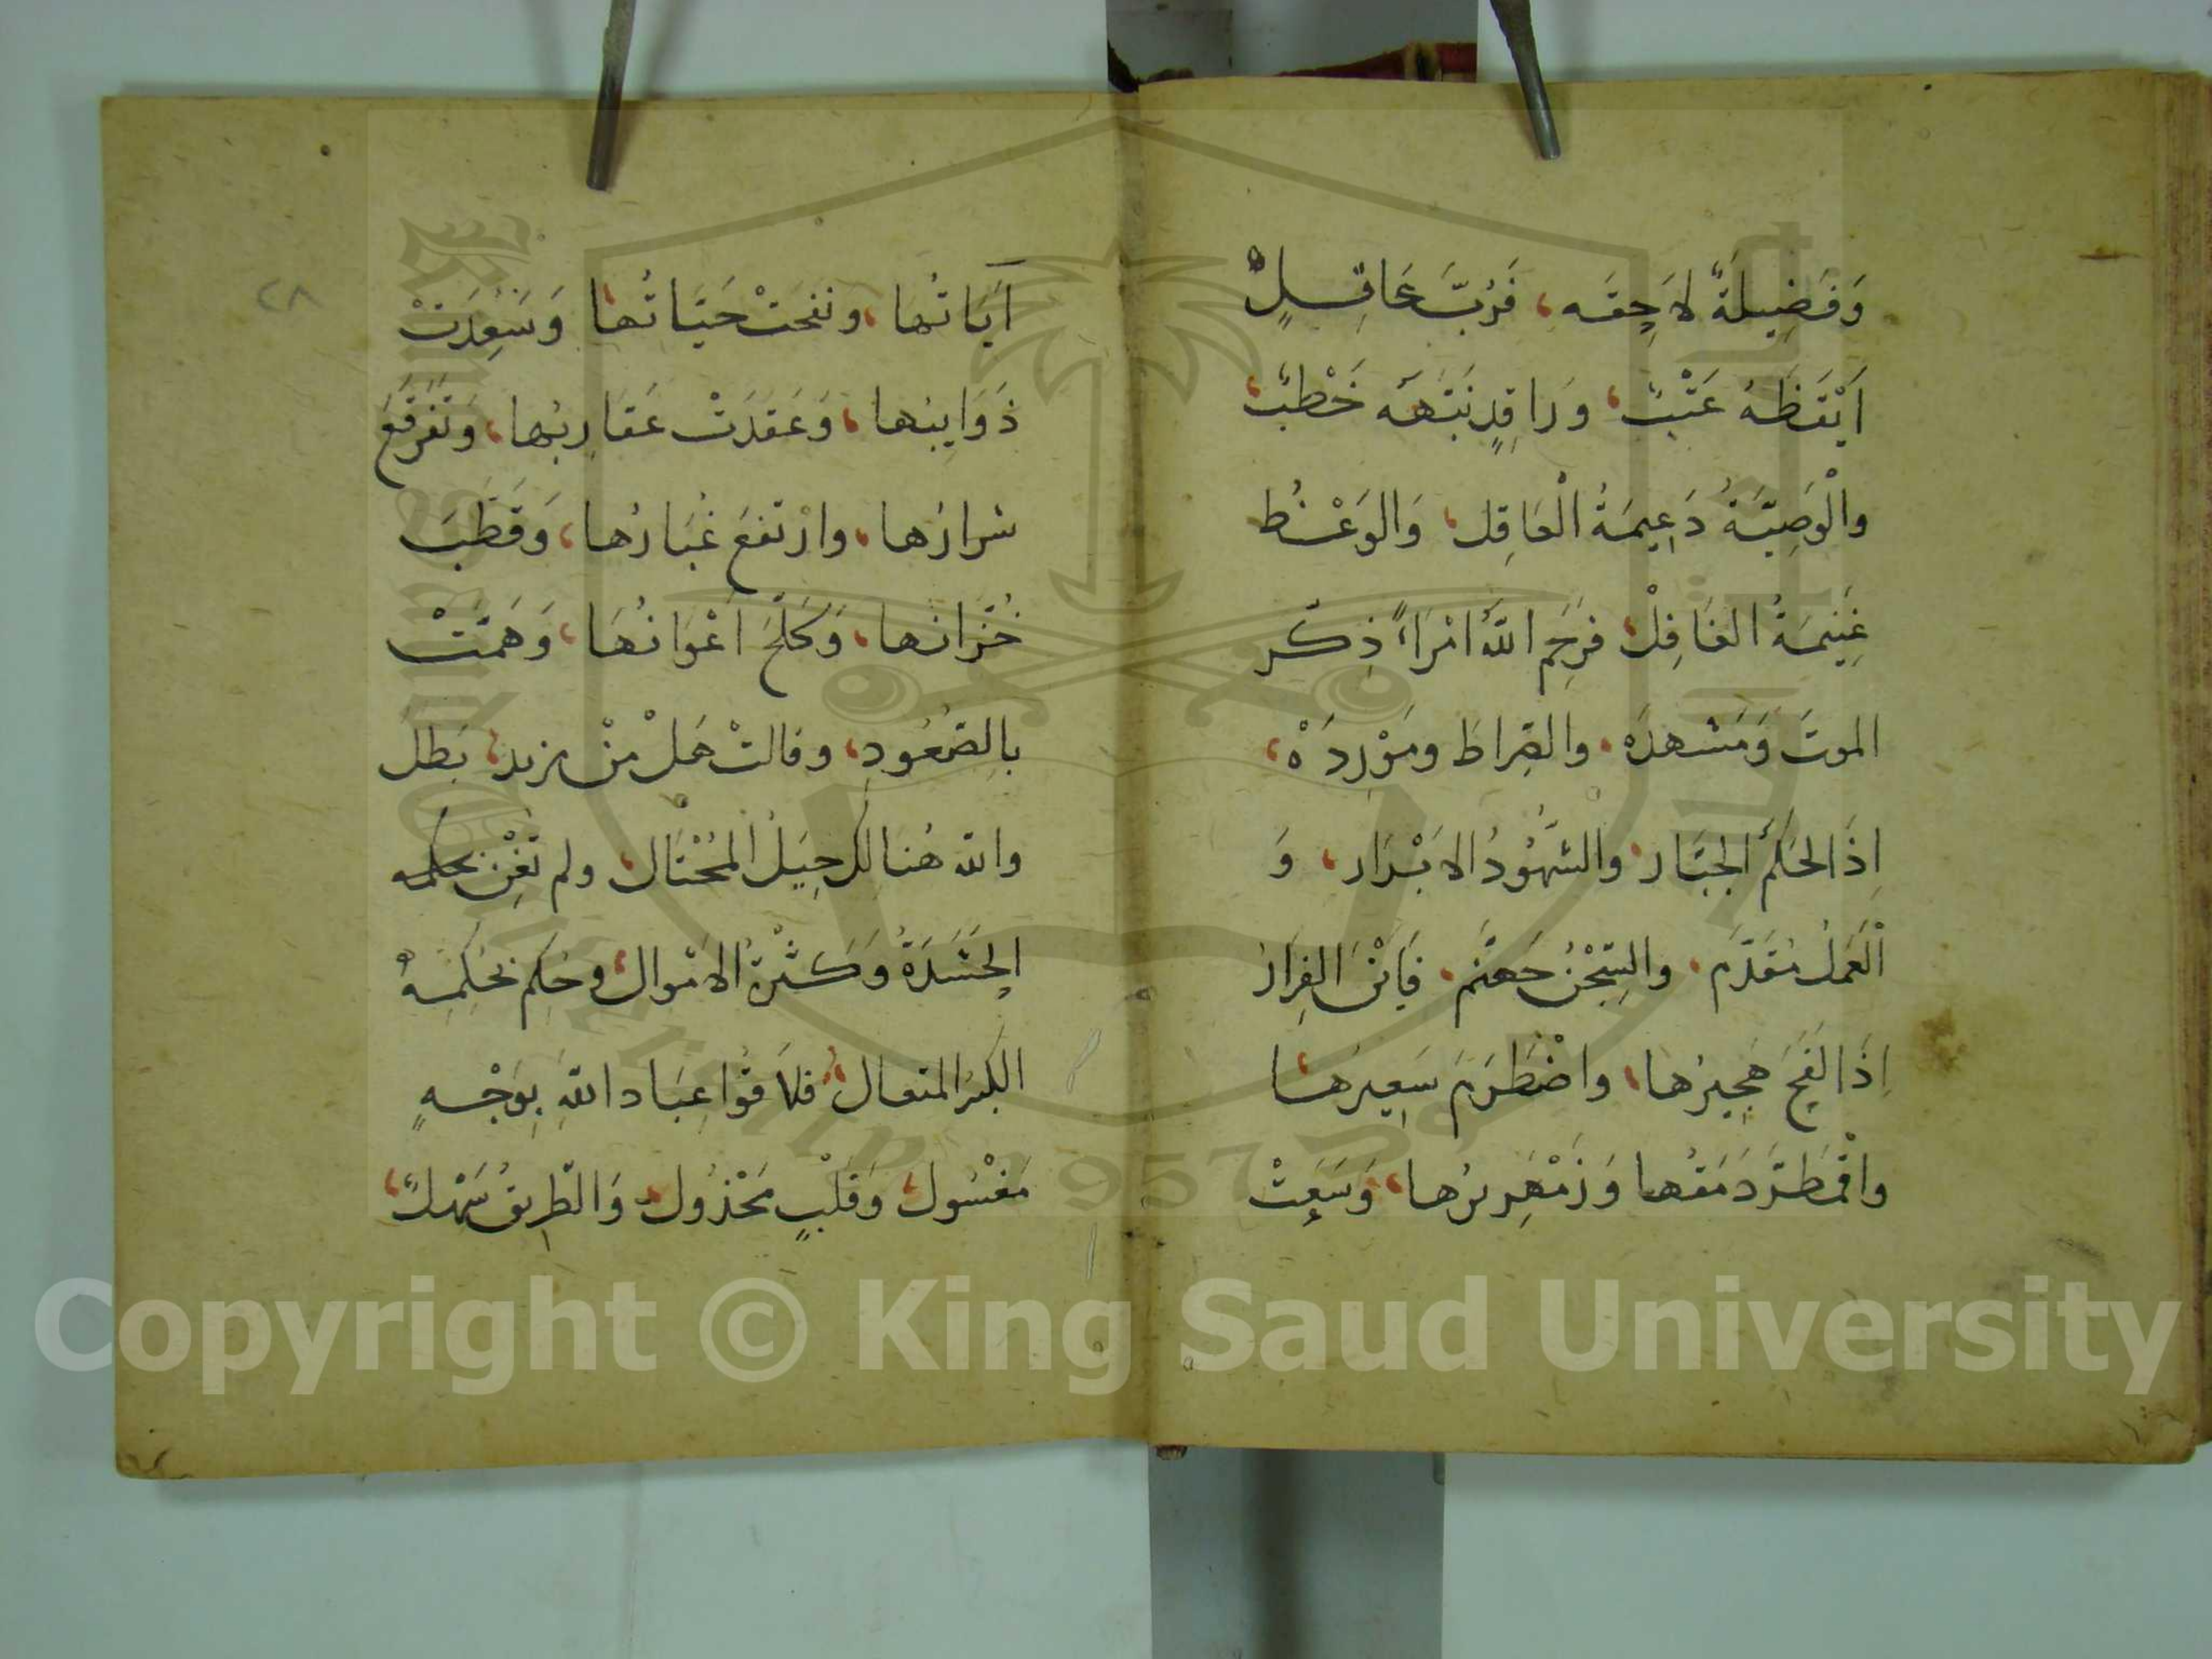 وَفَضِيلَةٌ لاَحِقَه، فَرُبَّ عَاقِلٍ
اَيْقَظَهُ عَتْبٌ، وَرَاقِدٍ نَبَّهَه خَطْبٌ،
والْوَصِيَّةُ دَعِيمَةُ الْعَاقِل، وَالوَعْظ
غَنِيمَةُ الغَافِلْ، فرَحِمَ اللهُ امْرَاً، ذكّر
الموتَ وَمَشهدَه، والصِّراطَ ومَوْرِدَهْ،
اِذَ الحَكَمُ الجبَّار، والشُّهُودُ الابْرَار، وَ
الْعَمَلُ مُقَدَّم، والسِّجْنُ جَهنَّم، فَاَيْنَ الفِرَارُ
اِذَا لَفَحَ هَجِيرُها، واضْطَرَمَ سَعِيرُها،
واقْمَطَرَّ دَمَقُها وَزَمْهَرِيرُها، وَسَعَتْ
٢٨
آيَاتُها، ونفخَتْ حَيَّاتُها، وَسَعِرَتْ
ذَوَايبُها، وَعَقدَتْ عَقارِبُها، وَتَفَرْقَعَ
شرارُها، وارْتفعَ غُبَارُها، وَقَطَّبَ
خُزّانُها، وَكَلَحَ اَعْوَانُهَا، وَهَمَّتْ
بالِصُّعُودِ، وقالتْ هَلْ مِنْ مزيد، بَطل
والله هُنالِك حِيَلُ المُحْتَال، ولم تُغْنِ بحكمه
الحَشَدَةُ وَكَثْرةُ الامْوال، وحُكِم بحُكمِهُ
الكبيرُ المتعال، فلاَقُوا عِبَادَ اللهِ بِوَجْهٍ
مَغْسُول، وَقلْبٍ مَحْذُول، وَالطّريقُ سَهْلٌ،
Copyright © King Saud University
1957